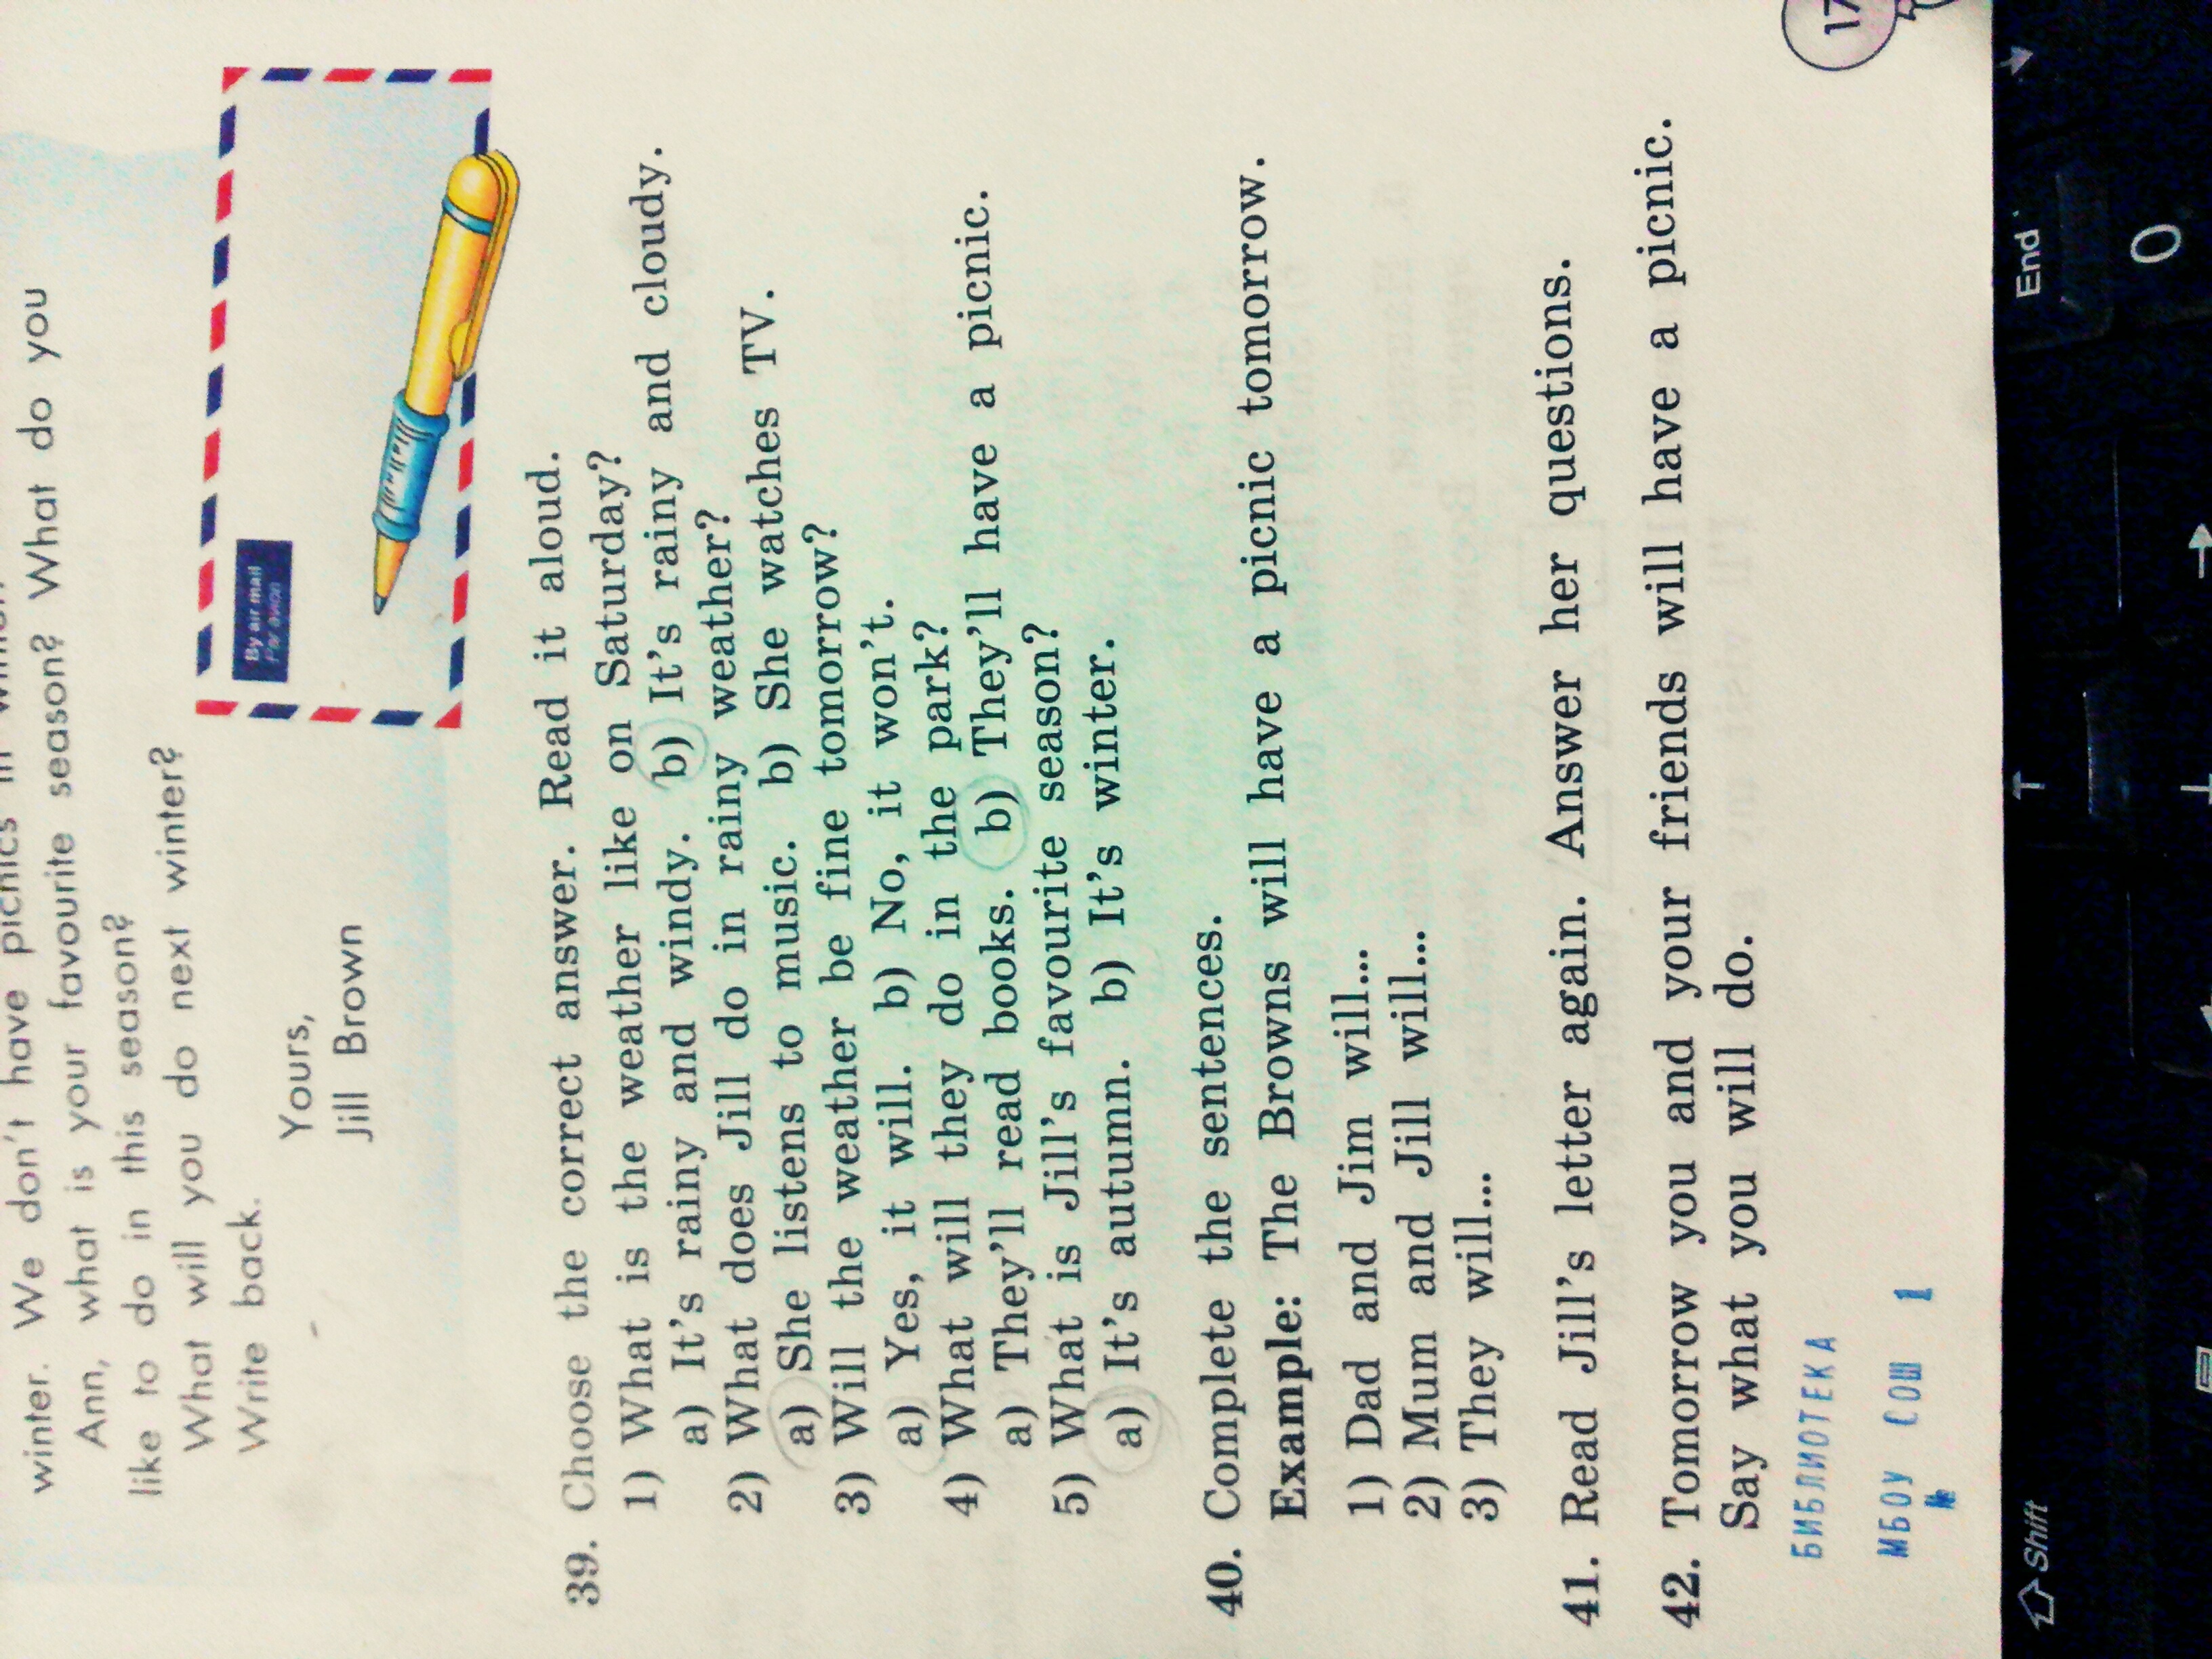 winter. We don't have picnics in
Ann, what is your favourite season? What do you
like to do in this season?
What will you do next winter?
Write back.
Yours,
Jill Brown
By air mail
Par avion
39. Choose the correct answer. Read it aloud.
1) What is the weather like on Saturday?
a) It's rainy and windy. b) It's rainy and cloudy.
2) What does Jill do in rainy weather?
a) She listens to music. b) She watches TV.
3) Will the weather be fine tomorrow?
a) Yes, it will. b) No, it won't.
4) What will they do in the park?
a) They'll read books. b) They'll have a picnic.
5) What is Jill's favourite season?
a) It's autumn. b) It's winter.
40. Complete the sentences.
Example: The Browns will have a picnic tomorrow.
1) Dad and Jim will...
2) Mum and Jill will...
3) They will...
41. Read Jill's letter again. Answer her questions.
42. Tomorrow you and your friends will have a picnic.
Say what you will do.
БИБЛИОТЕКА
МБОУ СОШ
№ 1
17
Shift
End
0